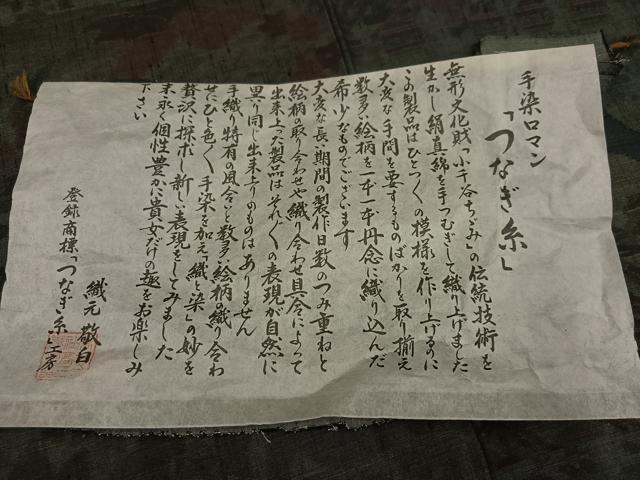 手染ロマン
「つなぎ糸」
無形文化財「小千谷ちゞみ」の伝統技術を
生かし絹真綿を手つむぎして織り上げました
この製品はひとつくの模様を作り上げるのに
大変な手間を要するものばかりを取り揃え
数多い絵柄を一本一本丹念に織り込んだ
希少なものでございます
大変な長い期間の製作日数のつみ重ねと
絵柄の取り合わせや織り合わせ具合によって
出来上った製品はそれぐの表現が自然に
異り同じ出来上りのものはありません
手織り特有の風合いと数多い絵柄の織り合わ
せにひと色く手染を加え「織と染」の妙を
贅沢に探求し新しい表現をしてみました
末永く個性豊かに貴女だけの趣をお楽しみ
下さい
織元 敬白
登録商標「つなぎ糸」工房